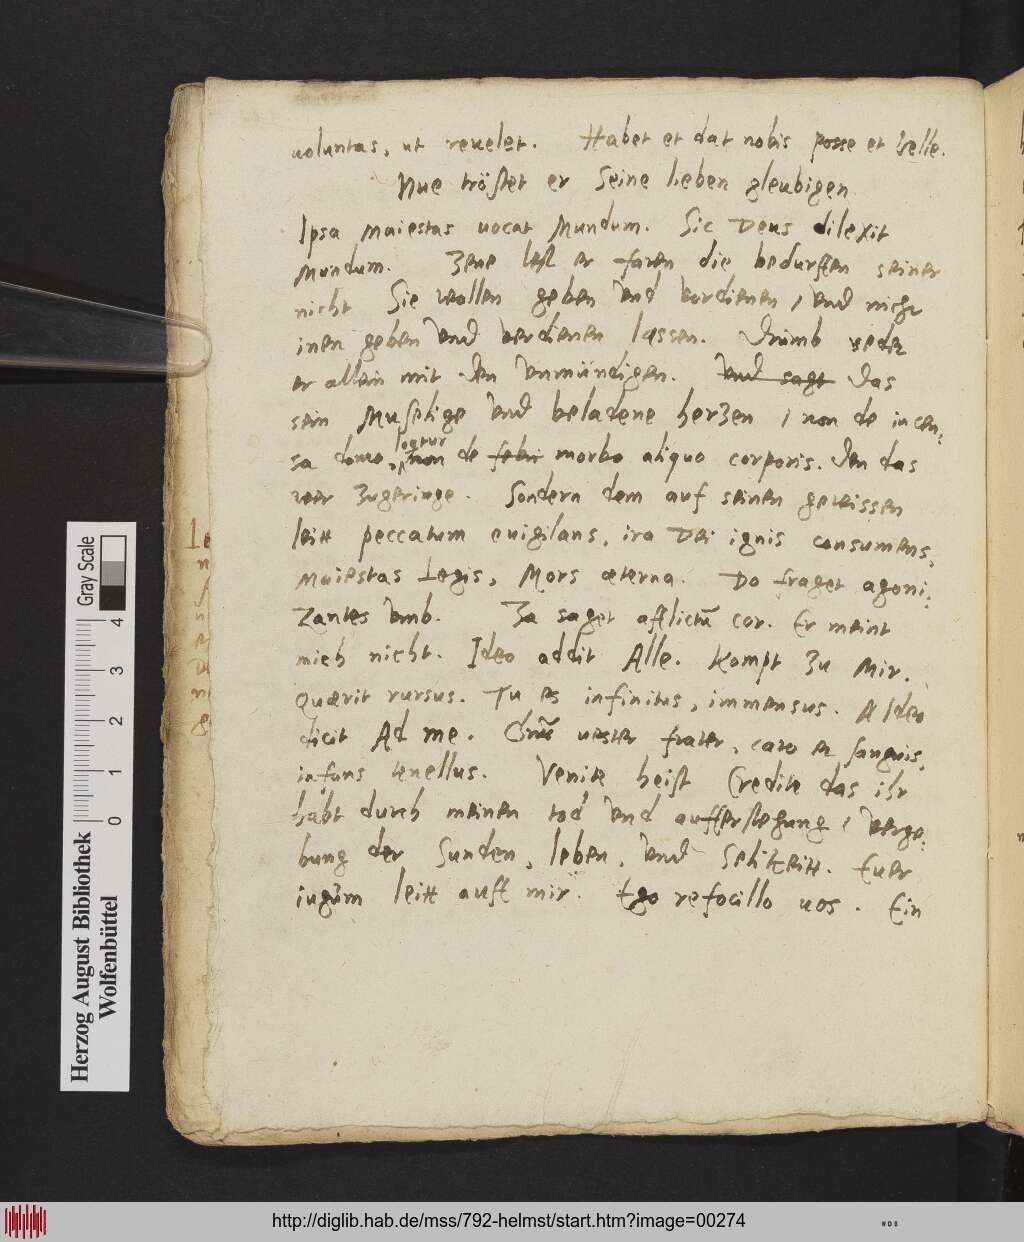 uoluntas, ut reuelet. Habet et dat nobis posse et Velle.
Nue tröstet er Seine lieben gleubigen.
Ipsa Maiestas uocat Mundum. Sic Deus dilexit
Mundum. Jene lest er faren die bedurffen seiner
nicht Sie wollen geben Vnd verdienen, Vnd nicht
inen geben Vnd verdienen lassen. Drumb redet
er allein mit den Vnmündigen. Vnd sagt Das
sein Muselige Vnd beladene herzen, non de incen:
sa domo, loqtur non de febri morbo aliquo corporis. Den das
wer Zugeringe. Sondern dem auf seinen gewissen
leitt peccatum euigilans, ira Dei ignis consumens,
Maiestas Legis, Mors æterna. Do fraget agoni:
zantes Vmb. Ja saget afflictũ cor. Er meint
mich nicht. Ideo addit Alle. Kompt Zu Mir.
Quærit rursus. Tu es infinitus, immensus. Ideo
dicit Ad me. uester frater, caro et sanguis,
infans tenellus. Venite heist Credite das ihr
habt durch meinen tod Vnd aufferstehung, Verge:
bung der Sunden, leben, Vnd Selikeitt. Euer
iugum leitt auff mir. Ego refocillo uos. Ein
Herzog August Bibliothek
Wolfenbüttel
Gray Scale
0 1 2 3 4
http://diglib.hab.de/mss/792-helmst/start.htm?image=00274